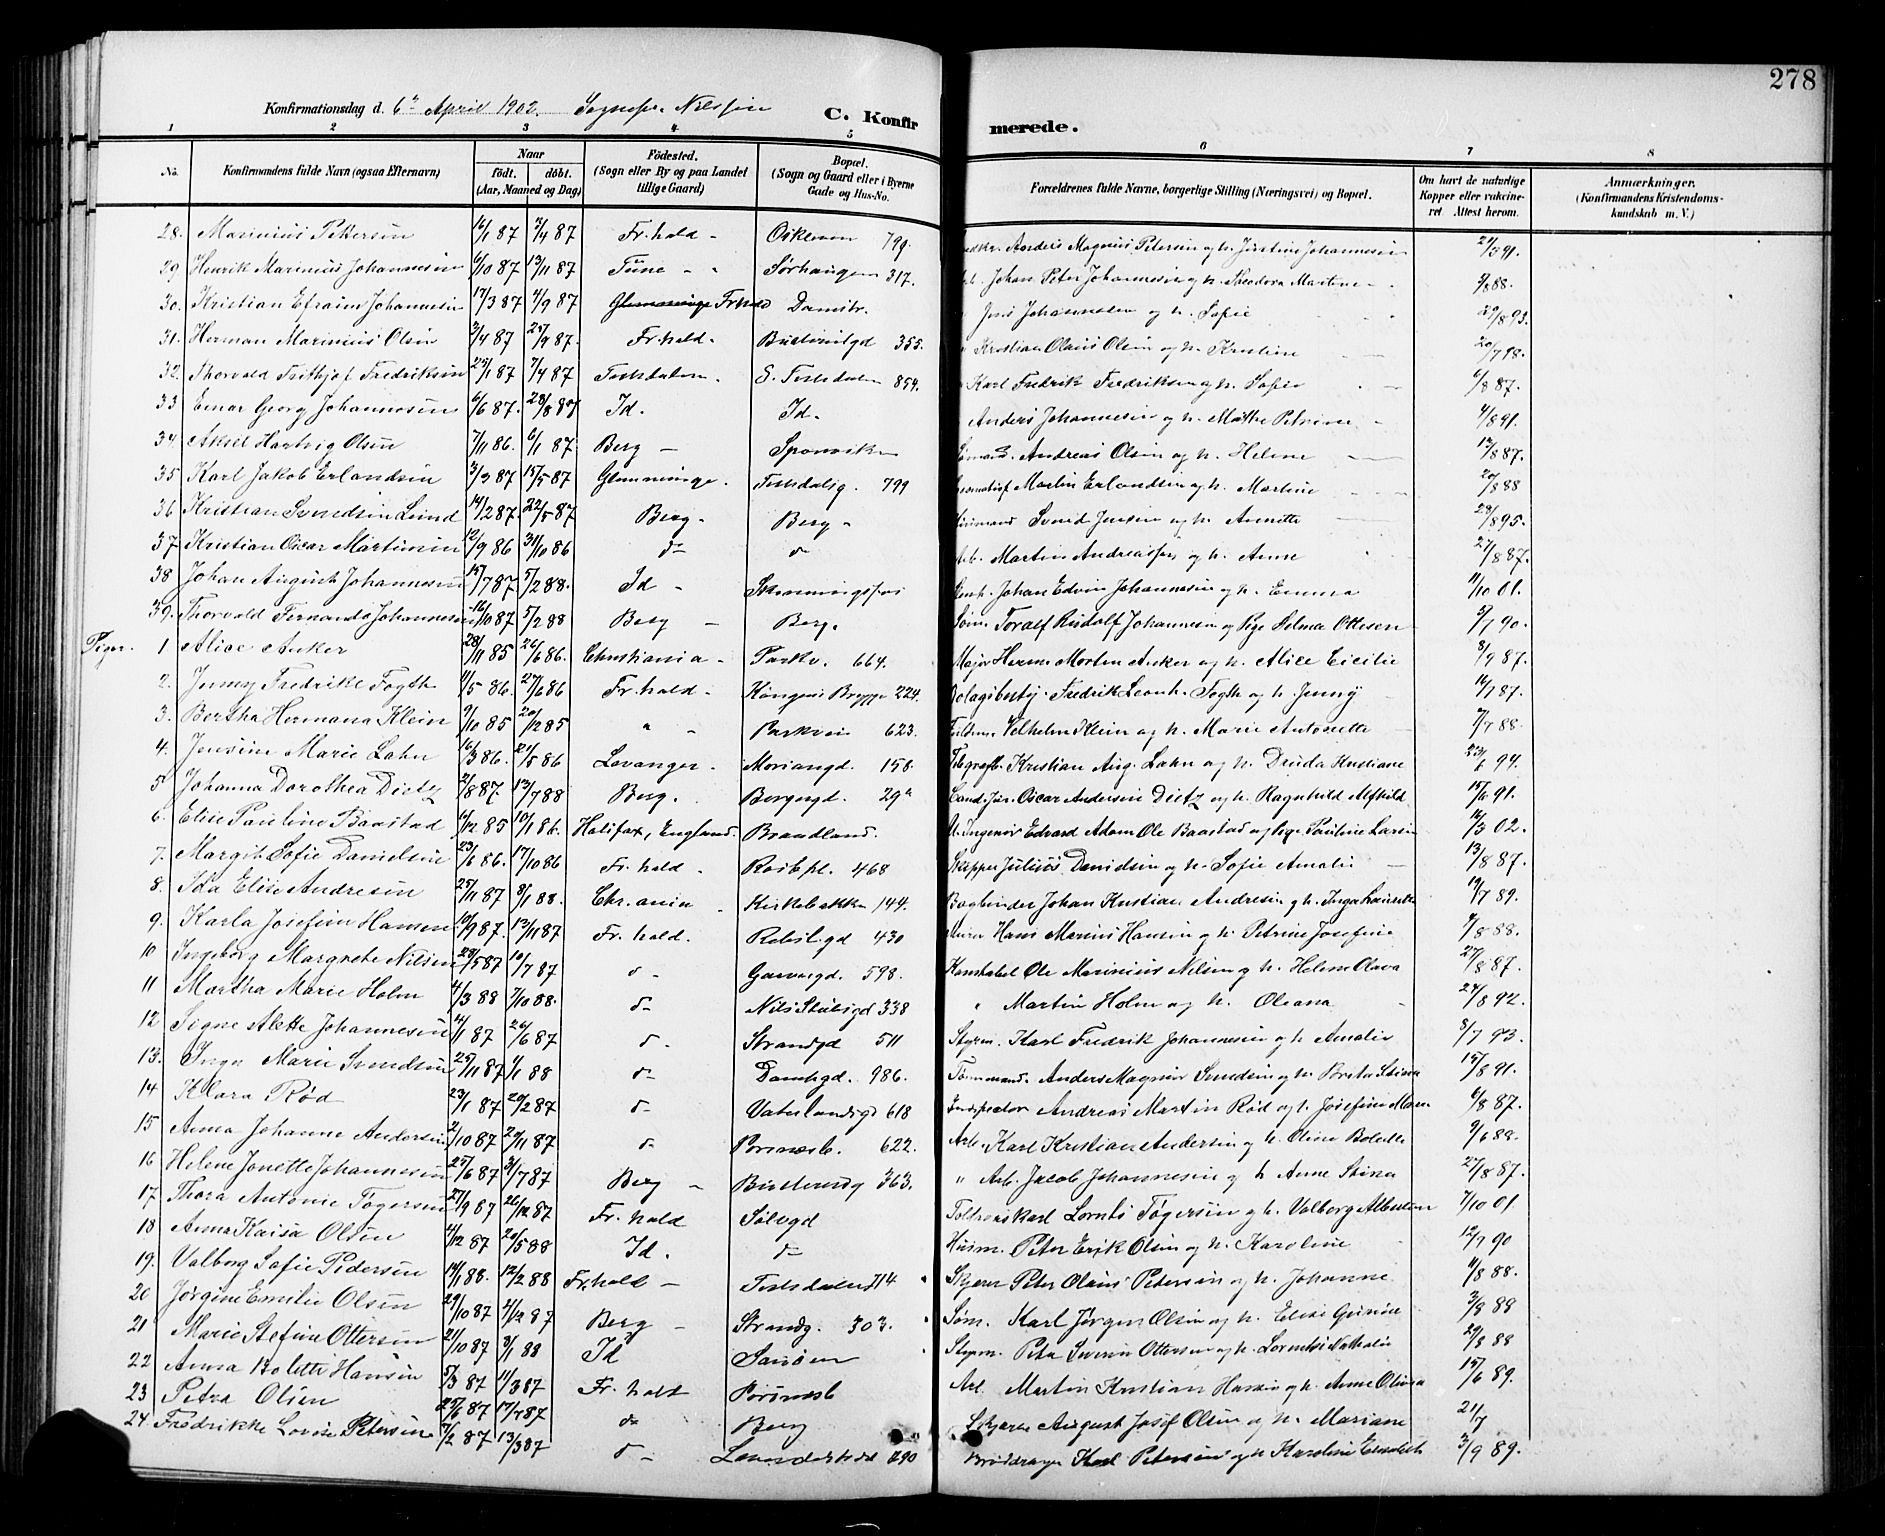 278
Konfirmationsdag d. 6te April 1902. Sognepr. Nilssen
C. Konfir merede.
1 2 3 4 5 6 7 8
No. Konfirmandens fulde Navn (ogsaa Efternavn) Naar født. døbt. (Aar, Maaned og Dag) Födested. (Sogn eller By og paa Landet tillige Gaard) Bopæl. (Sogn og Gaard eller i Byerne Gade og Hus-No. Forældrenes fulde Navne, borgerlige Stilling (Næringsvei) og Bopæl. Om havt de naturlige Kopper eller vakcineret. Attest herom. Anmærkninger. (Konfirmandens Kristendomskundskab m. V.)
28. Marinius Pettersen 16/1 87 7/4 87 Fr.hald - 790. Anders Magnus Petersen og h. Justine Johannesen 21/5 91.
29 Henrik Marinius Johannesen 6/10 87 13/11 87 Tune - Sørhaugen 317. Johan Peter Johannesen og h. Theodora Martine 9/8 88.
30. Kristian Efraim Johannesen 17/3 87 4/9 87 Glemminge Fr.hald Damstr. Jens Johannesen og h. Sofie 29/8 93.
31. Herman Marinius Olsen 3/4 87 25/9 87. Fr.hald. 355. Kristian Olaus Olsen og h. Kristine 20/7 98.
32. Thorvald Frithjof Fredriksen 25/1 87 7/4 87 Tistedalen. S. Tistedalen 854. Karl Fredrik Fredriksen og h. Sofie 6/8 87.
33 Einar Georg Johannesen 6/6 87. 28/8 87 Id. Id. Anders Johannesen og h. Mathe Petrine 4/8 91.
34 Aksel Hartvig Olsen 7/11 86. 6/1 87 Berg - Sponviken Andreas Olsen og h. Helene 12/8 87.
35 Karl Jakob Erlandsen 3/3 87 15/5 87 Glemminge. Tistedalsg. 799 Martin Erlandsen og h. Martine 20/8 88
36 Kristian Svendsen Lund 14/2 87. 22/5 87 Berg. Berg. Svend Jensen og h. Annette 28/8 95.
37. Kristian Oscar Martinsen 12/9 86 31/10 86 do do Arb. Martin Andreassen og h. Anne 27/8 87.
38 Johan August Johannesen 15/7 87 5/2 88. Id - Skonningsfos Johan Edvin Johannesen og h. Emma 11/10 01.
39. Thorvald Fernando Johannesen 16/10 87 5/2 88 Berg - Berg. Søm. Toralf Rudolf Johannesen og Pige Helma Ottesen 5/7 90.
Piger. 1 Alice Anker 28/11 85 26/6 86. Christiania - Parkv. 664. Major Herm. Morten Anker og h. Alice Cicilie 8/9 87.
2. Jenny Fredrike Fogth 11/5 86. 27/6 86 Fr.hald - Kongens Brygge 224. Fredrik Leonh. Fogth og h. Jenny 14/7 87.
3. Bertha Hermana Klein 9/10 85 20/12 85 " - Parkvei 623. Vilhelm Klein og h. Marie Antonette 7/7 88.
4. Jensine Marie Lahn 16/3 86. 21/5 86 Levanger - Moriangd. 158. Telegrafb. Kristian Aug. Lahn og h. Druda Kristiane 23/6 94.
5 Johanna Dorothea Dietz 2/8 87. 13/7 88 Berg. Borgergd. 29a Cand. Jur. Oscar Andersen Dietz og h. Ragnhild Alfhild 15/6 91.
6. Elise Pauline Baastad 10/12 85 10/1 86. Halifax, England. Brandland. Ingeniør Edvard Adam Ole Baastad og Pige Pauline Larsen 14/3 02.
7. Margit Sofie Danielsen 23/6 86. 17/10 86 Fr.hald. Rødspl. 468 Skipper Julius Danielsen og h. Sofie Amalie 13/8 87.
8. Ida Elise Andresen 25/11 87 8/1 88. Chr.ania - Kirkebakken 144. Bogbinder Johan Kristian Andresen og h. Inga Lauretta 19/7 89.
9. Karla Josefine Hansen 10/9 87. 13/11 87 Fr.hald. 430 Murer Hans Marius Hansen og h. Petrine Josefine 9/8 88.
10 Ingeborg Margrethe Nilsen 28/5 87 10/7 87 do - Garvergd. 598. Konstabel Ole Marinius Nilsen og h. Helene Olava 27/8 87.
11 Martha Marie Holm 4/3 88 7/10 88. do - Nils Stubsgd 338 " Martin Holm og h. Oleana 24/8 92.
12 Signe Alette Johannesen 4/1 87 26/6 87 do. Strandgd 511 Styrm. Karl Fredrik Johannesen og h. Amalie 8/7 93.
13. Inga Marie Svendsen 25/11 87 1/1 88 do Damhgd. 986. Tømmermand. Anders Magnus Svendsen og h. Brita Stina 15/8 91.
14 Klara Rød 23/1 87 20/2 87 do - Vaterlandsgd 618 Inspector Andreas Martin Rød og h. Josefine Marie 6/8 87.
15 Anna Johanne Andersen 2/10 87 27/11 87 do Porsnæsb. 622. Arb. Karl Kristian Andersen og h. Oline Bolette 9/6 88.
16 Helene Jonette Johannesen 25/6 87 31/7 87 Berg - 363. " Arb. Jacob Johannesen og h Anne Stina 27/8 87.
17. Thora Antonie Tøgersen 27/9 87 26/12 87 Fr.hald Sølvgd Toldrorskarl Lornts Tøgersen og h. Valborg Albertine 7/10 01.
18 Anna Kaisa Olsen 4/12 87 20/5 88 Id. do Husm. Peter Erik Olsen og h. Karoline 12/7 90
19. Valborg Sofie Pedersen 14/1 88. 12/2 88 Fr.hald - Tistedalen 714 Skjærer Peter Olaus Petersen og h. Johanne 11/8 88.
20 Jørgine Emilie Olsen 29/10 87 4/12 87 Berg - Strandg. 303. Søm. Karl Jørgen Olsen og h. Elise 3/8 88
21 Marie Stefine Ottersen 21/10 87 3/1 88 Id Sanøen Styrm. Peter Severin Ottersen og h. Lorentse Nathalie 29/8 88
22 Anna Bolette Hansen 5/3 87 11/3 87 Fr.hald Porsnæsb Arb. Martin Kristian Hansen og h. Anne Olivia 15/6 89.
23 Petra Olsen 25/6 87 17/7 87 do Berg Skjærer August Josef Olsen og h. Mariane 21/7
24 Fredrikke Lovise Petersen 7/2 87 13/3 87 do - 290 Brøddrager Karl Petersen og h. Karoline Elisabeth 3/9 89.